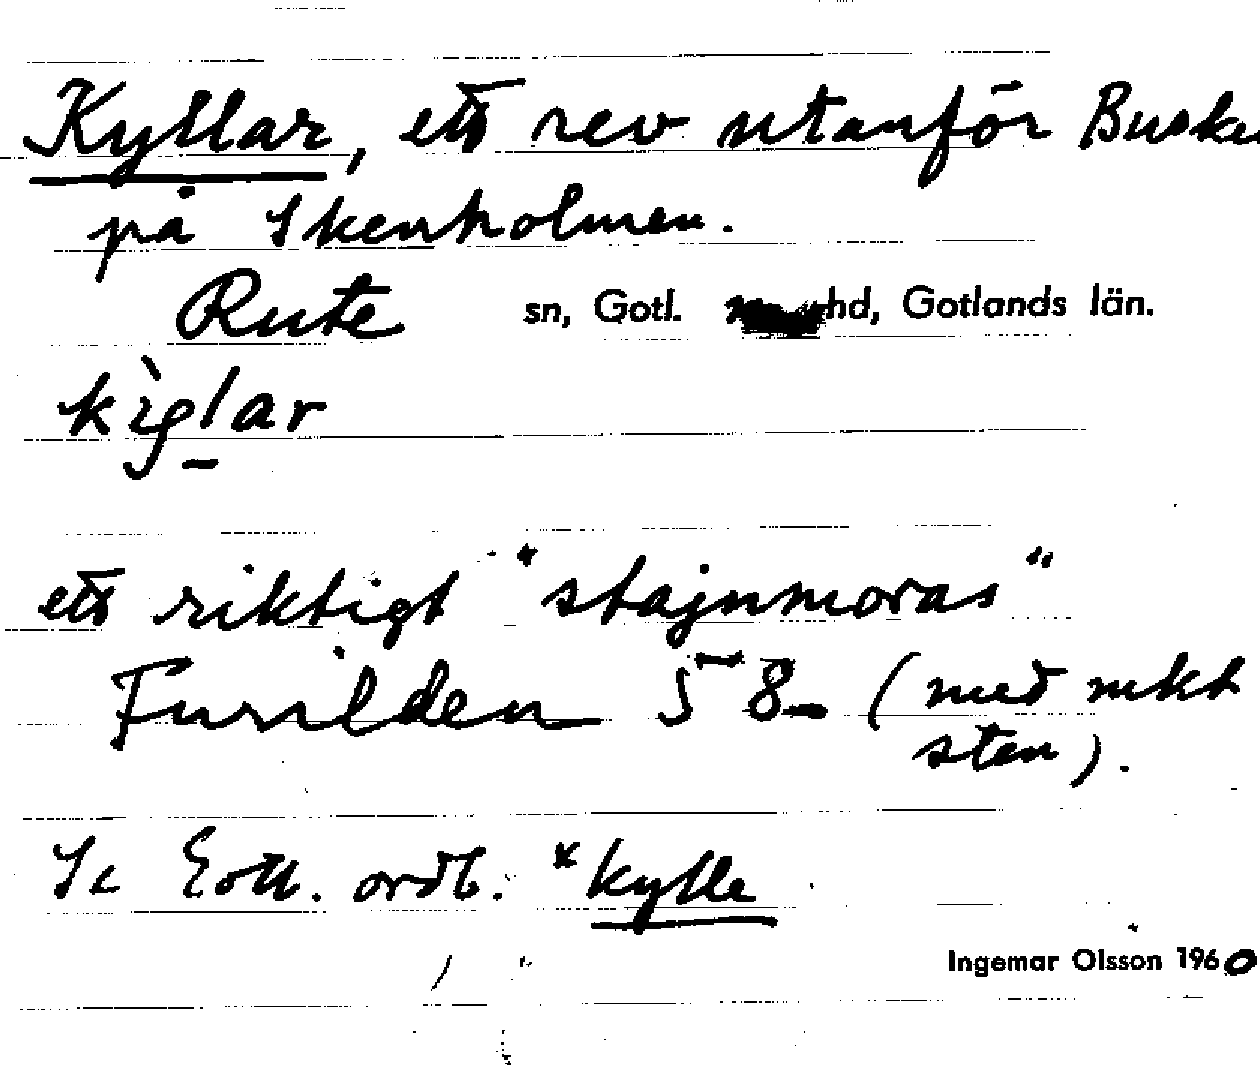 Kyllar, ett rev utanför Buske
på Skenholmen.
Rute sn, Gotl. hd, Gotlands län.
kìglar
ett riktigt "stajnmoras"
Furilden 58 (med mkt
sten).
Se Gotl. ordb. *kylle
Ingemar Olsson 1960